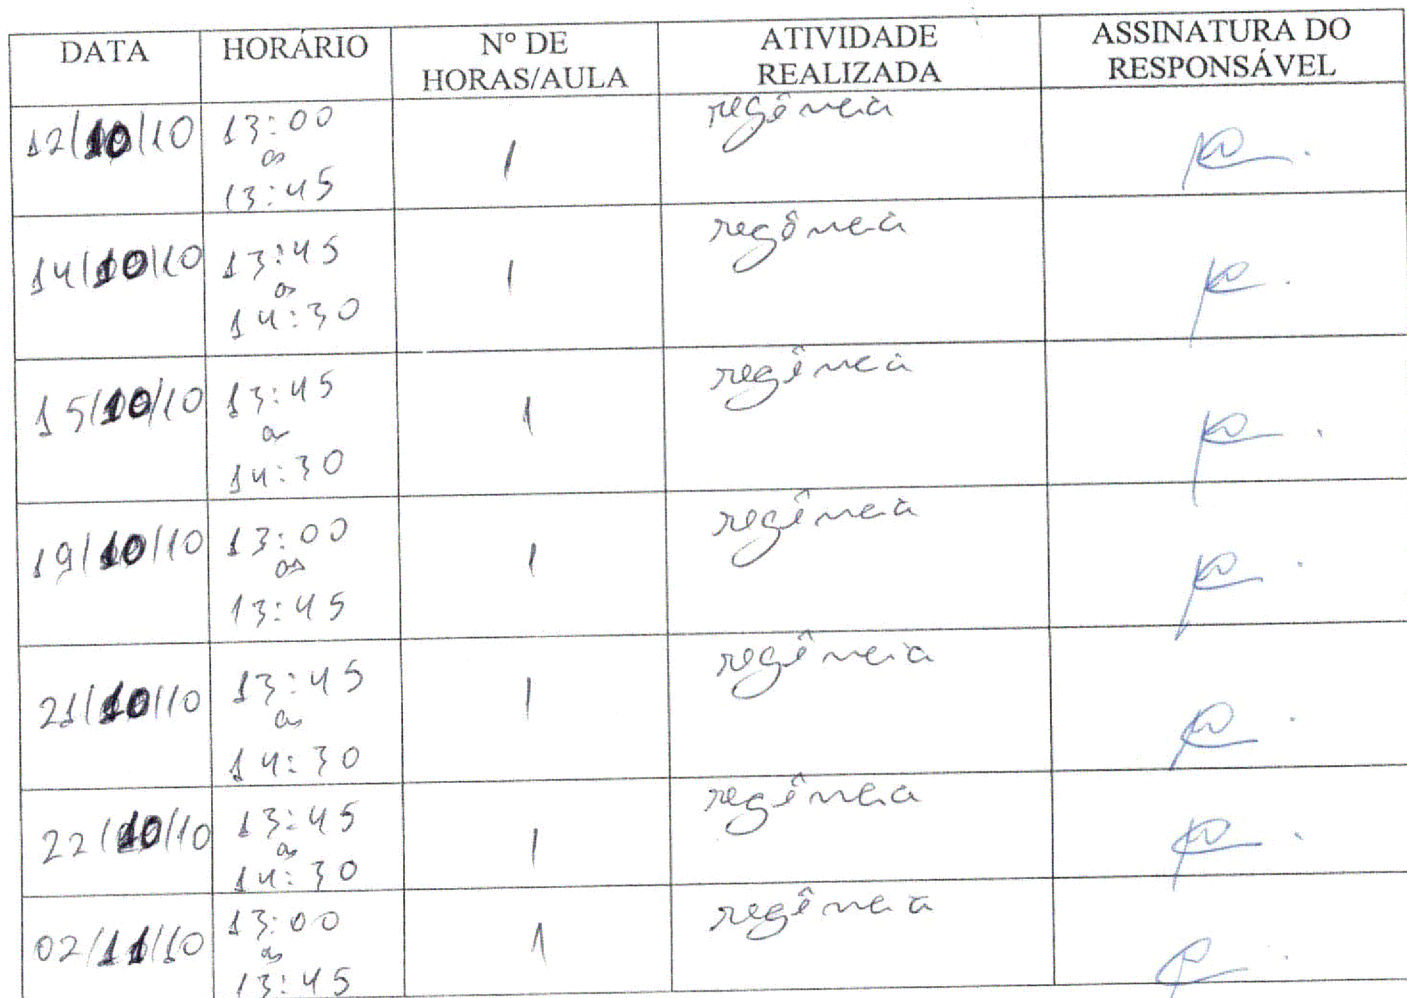 DATA HORÁRIO Nº DE HORAS/AULA ATIVIDADE REALIZADA ASSINATURA DO RESPONSÁVEL
12/10/10 13:00 as 13:45 1 regência
14/10/10 13:45 as 14:30 1 regência
15/10/10 13:45 a 14:30 1 regência
19/10/10 13:00 as 13:45 1 regência
21/10/10 13:45 as 14:30 1 regência
22/10/10 13:45 as 14:30 1 regência
02/11/10 13:00 as 13:45 1 regência